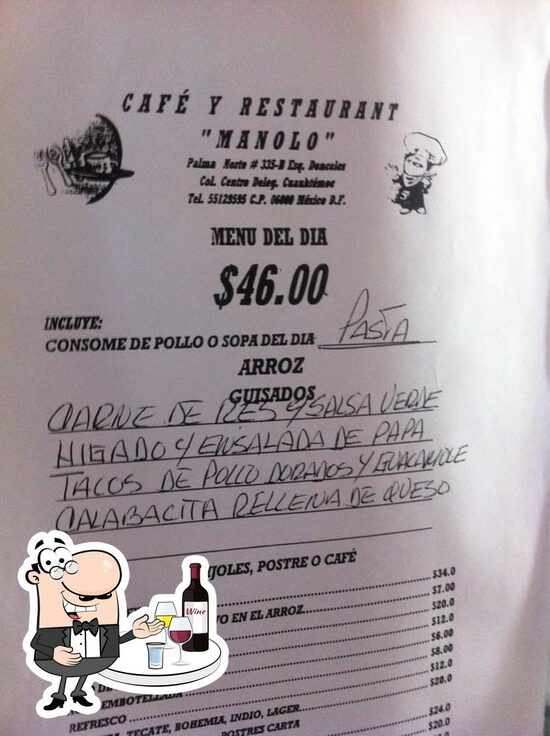 CAFÉ Y RESTAURANT
"MANOLO"
Palma Norte # 335-B Esq. Donceles
Col. Centro Deleg. Cuauhtémoc
Tel. 55129595 C.P. 06000 México D.F.
MENU DEL DIA
$46.00
INCLUYE:
CONSOME DE POLLO O SOPA DEL DIA PASTA
ARROZ
GUISADOS
CARNE DE RES Y SALSA VERDE
HIGADO Y ENSALADA DE PAPA
TACOS DE POLLO DORADOS Y GUACAMOLE
CALABACITA RELLENA DE QUESO
IJOLES, POSTRE O CAFÉ
$34.0
$7.00
VO EN EL ARROZ $20.0
$12.0
$6.00
$8.00
EMBOTELLADA $12.0
REFRESCO $20.0
TECATE, BOHEMIA, INDIO, LAGER $24.0
POSTRES CARTA $20.0
Wine